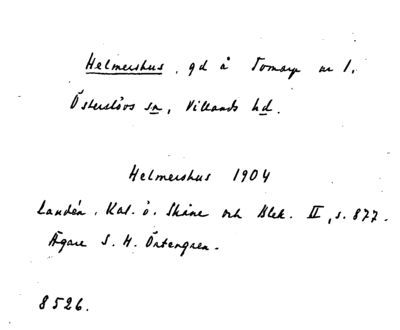 Helmershus, gd å Tomarp nr 1,
Österslövs sn, Villands hd.
Helmershus 1904
Landén. Kal. ö. Skåne och Blek. II, s. 877.
Ägare S. H. Östergren.
8526.